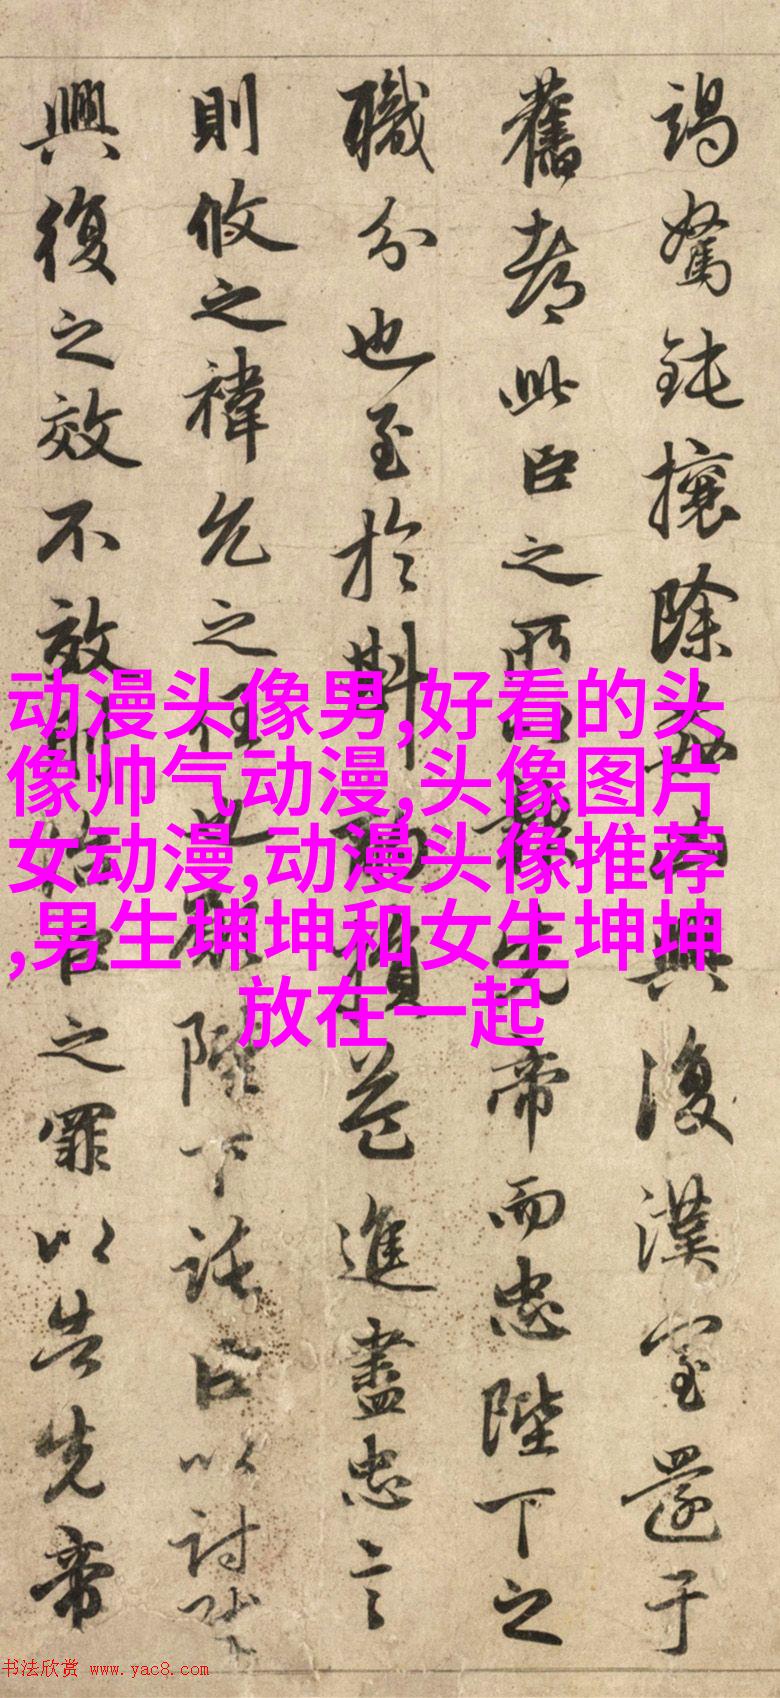 竭駑鈍攘除姦凶興復漢室還于
舊都此臣之所以報先帝而忠陛下之
職分也至於斟酌損益進盡忠言
則攸之禕允之任也願陛下託臣以討賊
興復之效不效則治臣之罪以告先帝
动漫头像男,好看的头
像帅气动漫,头像图片
女动漫,动漫头像推荐
,男生坤坤和女生坤坤
放在一起
书法欣赏 www.yac8.com